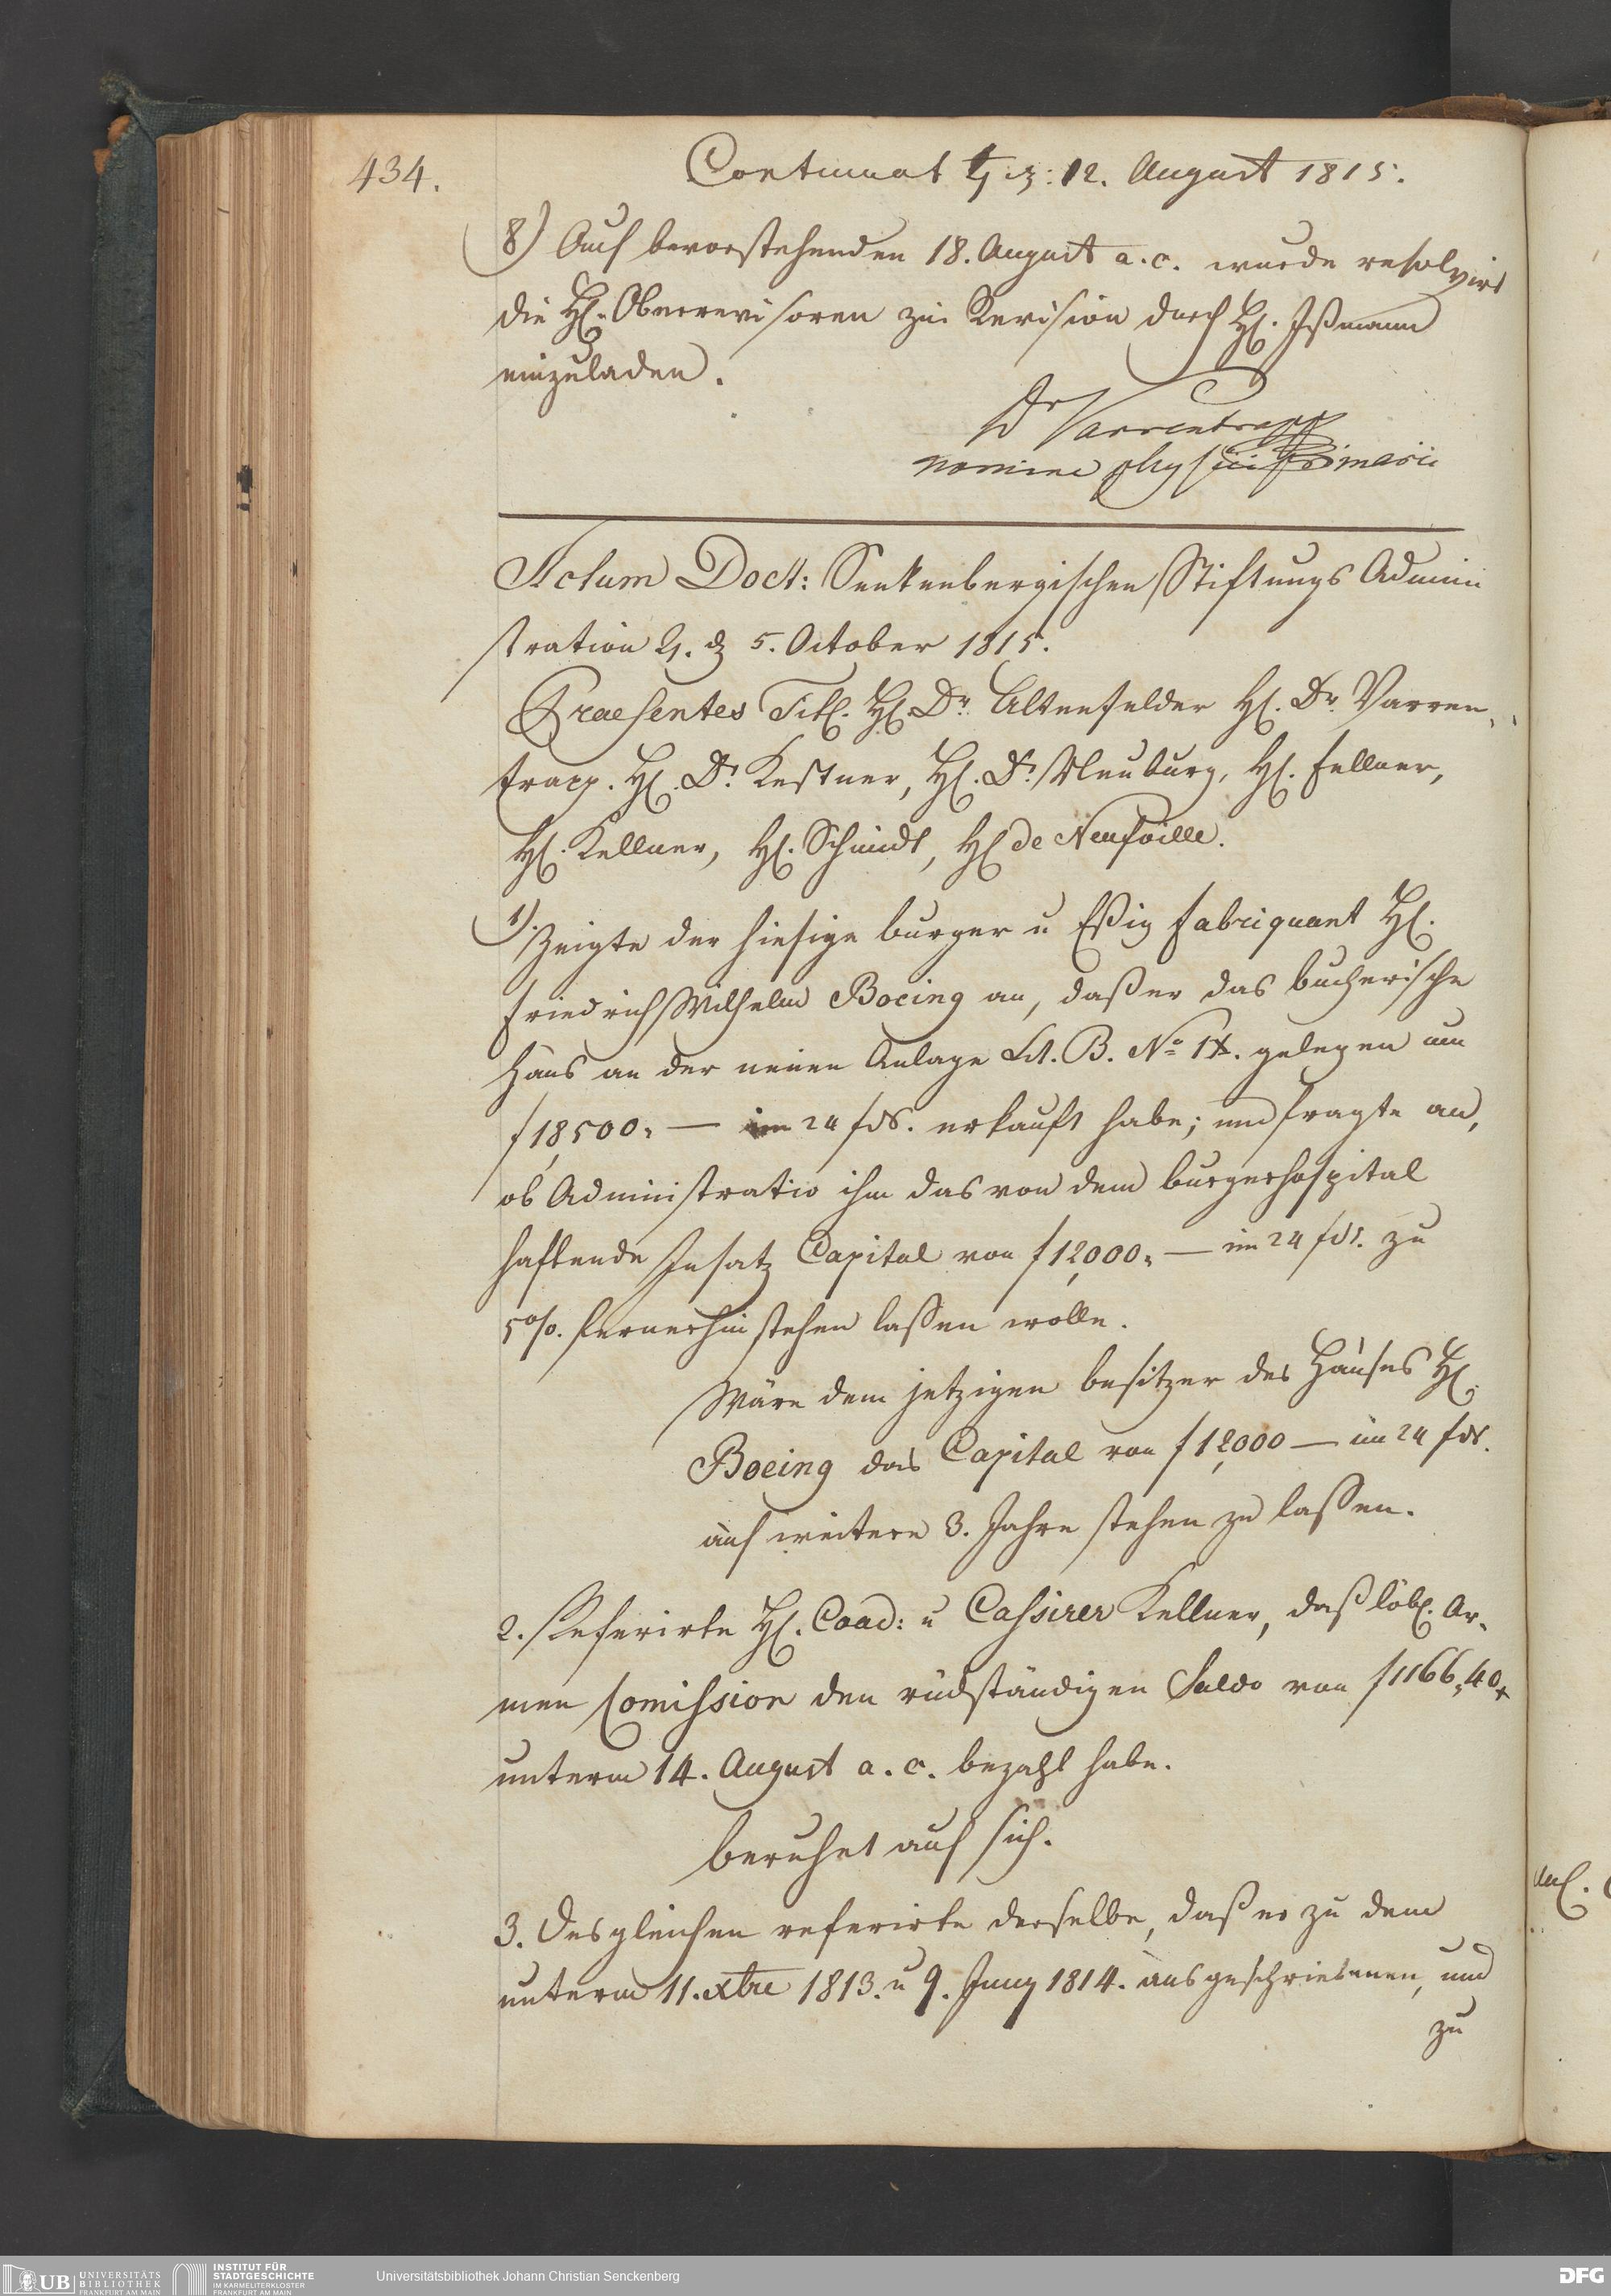 434.
Continuat ♄ d: 12. August 1815.
8) Auf bevorstehenden 18. August a. c. wurde resolvirt
die H. Oberrevisoren zu Revision durch H. Ißmann
einzuladen.
Dr Varrentrapp
nomine physici primarii
Actum Doct: Senkenbergischen Stiftungs Admini
stration ♃. d 5. October 1815.
Praesentes Titl. H. Dr. Altenfelder H. Dr. Varren,,
trapp. H. Dr. Kestner, H. Dr. Neuburg, H. Fellner,
H. Kellner, H. Schmidt, H de Neufville.
1). Zeigte der hiesige burger u Eßig fabriquant H.
Friedrich Wilhelm Boeing an, daß er das bucherische
Haus an der neuen Anlage Lit. B. No gelegen um
f 18,500. — im 24 fuß. erkauft habe; und fragte an,
ob Administratio ihm das von dem burgerhospital
haftende Insatz Capital von f 12,000. — im 24 fuß. zu
5%. fernerhin stehen laßen wolle.
Wäre dem jetzigen besitzer des Hauses H.
Boeing das Capital von f 12,000 — im 24 fuß.
auf weitere 3. Jahre stehen zu laßen.
2. Referirte H. Coad: u Cassirer Kellner, daß löbl. Ar-
men Comission den rückständigen Saldo von f 1166,40 x
unterm 14. August a. c. bezahl habe.
beruhet auf sich.
3. Desgleichen referirte derselbe, daß er zu dem
unterm 11. xbre 1813. u 9. Juny 1814. ausgeschriebenen, und
zu
UB UNIVERSITÄTS
BIBLIOTHEK
FRANKFURT AM MAIN
INSTITUT FÜR
STADTGESCHICHTE
IM KARMELITERKLOSTER
FRANKFURT AM MAIN
Universitätsbibliothek Johann Christian Senckenberg
DFG